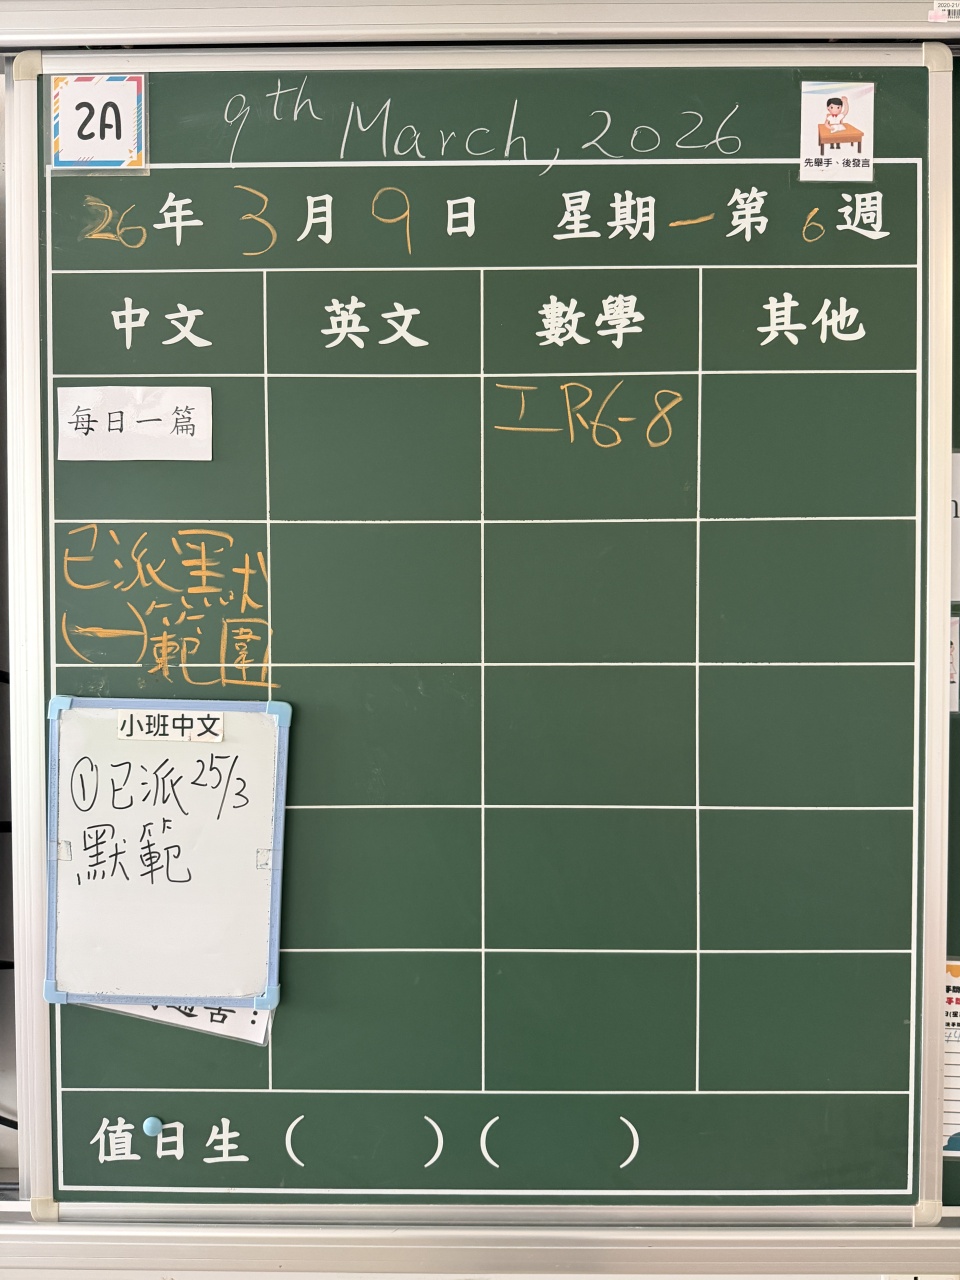 2A
9th March, 2026
先舉手、後發言
26年3月9日 星期一第6週
中文 英文 數學 其他
每日一篇
工R6-8
已派默
(一)範圍
小班中文
①已派25/3
默範
值日生 ( ) ( )